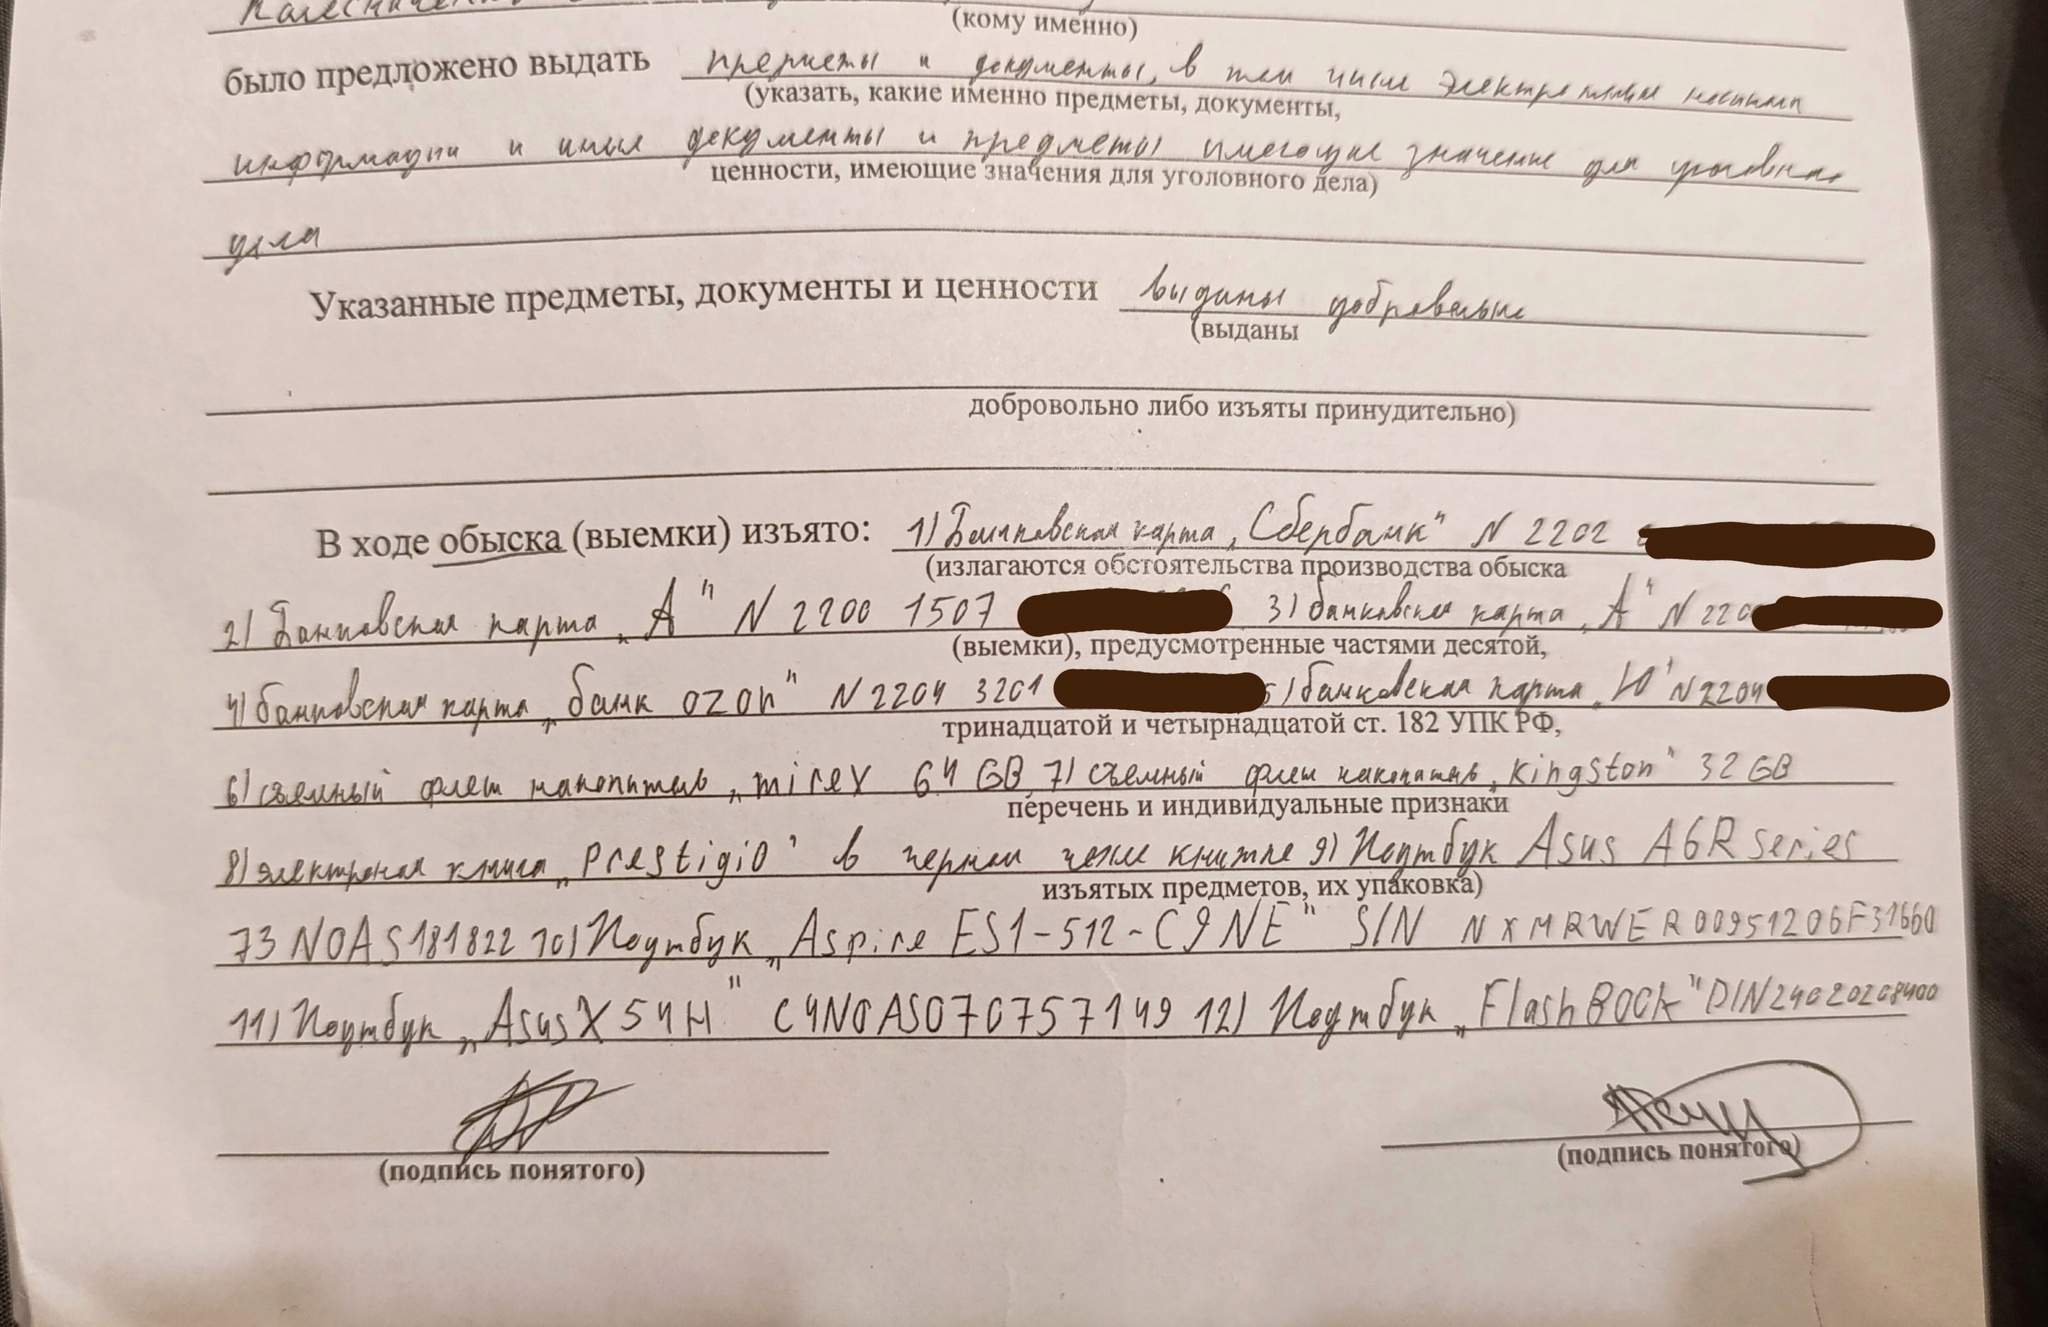 (кому именно)
было предложено выдать предметы и документы, в том числе электронные носители
(указать, какие именно предметы, документы,
информации и иные документы и предметы имеющие значение для уголовного
ценности, имеющие значения для уголовного дела)
дела
Указанные предметы, документы и ценности выданы добровольно
(выданы
добровольно либо изъяты принудительно)
В ходе обыска (выемки) изъято: 1) Банковская карта „Сбербанк" N 2202
(излагаются обстоятельства производства обыска
2) Банковская карта „А" N 2200 1507 3) банковская карта „А" N 220
(выемки), предусмотренные частями десятой,
4) банковская карта „банк ozon" N 2204 3201 5) банковская карта „Ю" N 2204
тринадцатой и четырнадцатой ст. 182 УПК РФ,
6) съемный флеш накопитель „mirex 64 GB 7) съемный флеш накопитель „Kingston" 32 GB
перечень и индивидуальные признаки
8) электроная книга „Prestigio" в черном чехле книжке 9) Ноутбук Asus A6R series
изъятых предметов, их упаковка)
73NOAS181822 10) Ноутбук „Aspire ES1-512-C9NE" S/N NXMRWER00951206F31660
11) Ноутбук „Asus X54H" C4N0AS070757149 12) Ноутбук „FlashBOOK" DIN24020208400
(подпись понятого)
(подпись понятого)